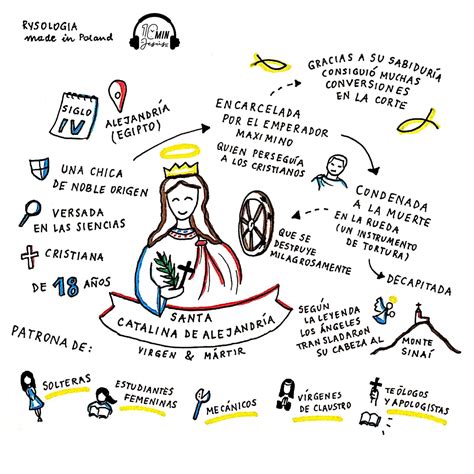 RYSOLOGIA
made in Poland
10MIN
Jesús
SIGLO
IV
ALEJANDRÍA
(EGIPTO)
UNA CHICA
DE NOBLE ORIGEN
VERSADA
EN LAS SIENCIAS
CRISTIANA
DE 18 AÑOS
ENCARCELADA
POR EL EMPERADOR
MAXIMINO
QUIEN PERSEGUÍA
A LOS CRISTIANOS
GRACIAS A SU SABIDURÍA
CONSIGUIÓ MUCHAS
CONVERSIONES
EN LA CORTE
CONDENADA
A LA MUERTE
EN LA RUEDA
(UN INSTRUMENTO
DE TORTURA)
QUE SE
DESTRUYE
MILAGROSAMENTE
DECAPITADA
SEGÚN
LA LEYENDA
LOS ÁNGELES
TRANSLADARON
SU CABEZA AL
MONTE
SINAÍ
SANTA
CATALINA DE ALEJANDRÍA
VIRGEN & MÁRTIR
PATRONA DE:
SOLTERAS
ESTUDIANTES
FEMENINAS
MECÁNICOS
VÍRGENES
DE CLAUSTRO
TEÓLOGOS
Y APOLOGISTAS